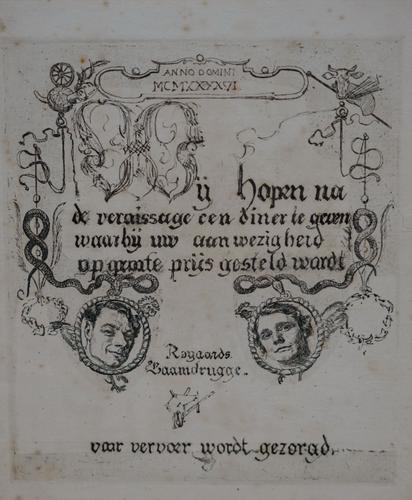 ANNO DOMINI
MCMXXXXVI
Wij hopen na
de vernissage een diner te geven
waarbij uw aanwezigheid
op groote prijs gesteld wordt
Royaards
Baambrugge.
voor vervoer wordt gezorgd.